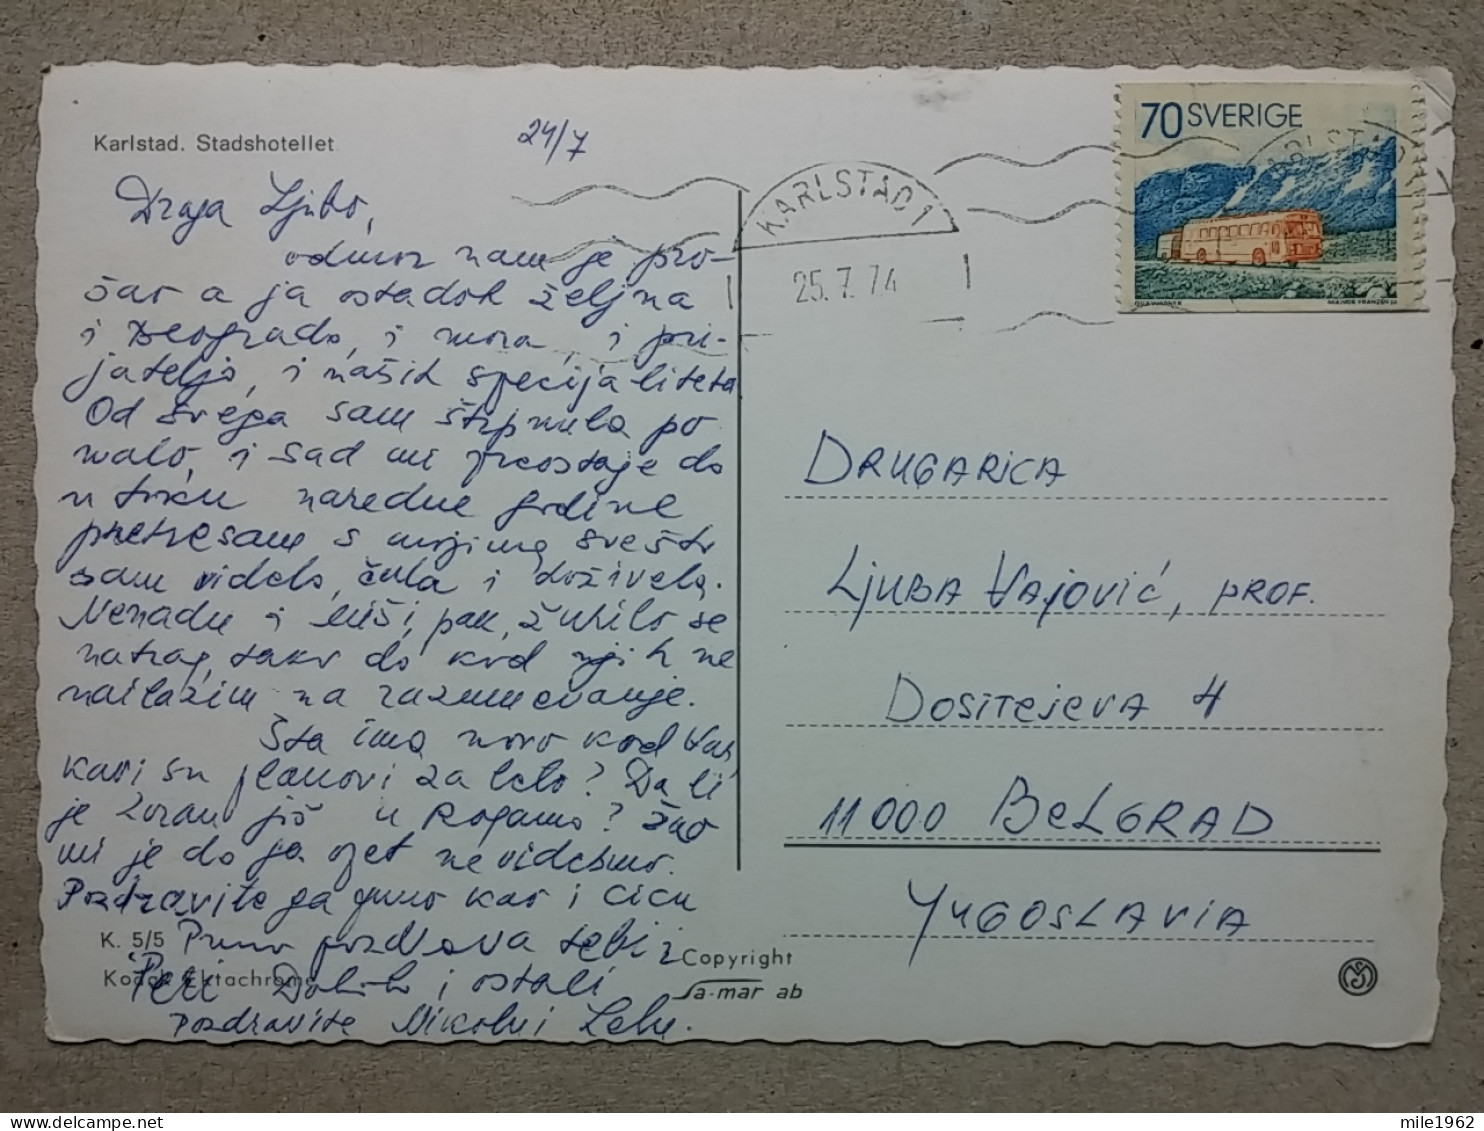 Karlstad. Stadshotellet
24/7
Draga Ljubo,
odmor nam je pro-
šao a ja ostadoh željna
i Beograda, i mora, i pri-
jatelja, i naših specijaliteta
Od svega sam štrpnula po
malo, i sad mi preostaje da
u toku naredne godine
pretresam s mojima sve što
sam videla, čula i doživela.
Nenadu i Miši, pak, žurilo se
natrag, tako da kod njih ne
nailazim na razumevanje.
Šta ima novo kod Vas,
kavi su planovi za leto? Da li
je Zoran još u Rogamo? Žao
mi je da ga opet ne videsmo.
Pozdravite ga puno kao i Cicu
K. 5/5
Puno pozdrava tebi i
Kodak Ektachrome
Peri i ostali
pozdravite Nikolu i
Copyright
Sa-mar ab
70 SVERIGE
MAJVOR FRANZÉN SC
KARLSTAD 1
25.7.74
KARLSTAD
DRUGARICA
LJUBA VAJOVIĆ, PROF.
DOSITEJEVA 4
11000 BELGRAD
YUGOSLAVIA
mile1962